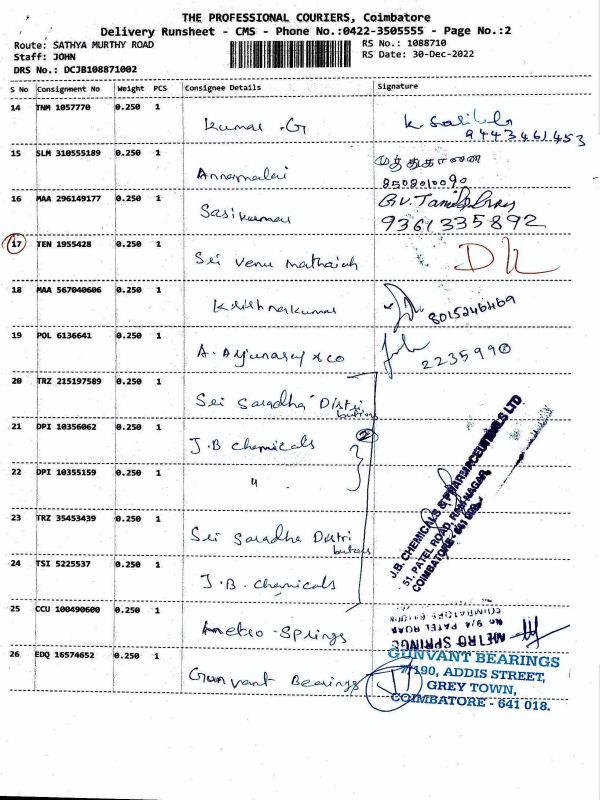 THE PROFESSIONAL COURIERS, Coimbatore
Delivery Runsheet - CMS - Phone No.:0422-3505555 - Page No.:2
Route: SATHYA MURTHY ROAD
RS No.: 1088710
Staff: JOHN
RS Date: 30-Dec-2022
DRS No.: DCJB108871002
S No Consignment No Weight PCS Consignee Details Signature
14 TNM 1057770 0.250 1 Kumar .G
9443461453
15 SLM 310555189 0.250 1 Annamalai
8508010090
16 MAA 296149177 0.250 1 Sasikumar
9361335892
17 TEN 1955428 0.250 1 Sri Venu
18 MAA 567040606 0.250 1 Krishnakumar 8015246469
19 POL 6136641 0.250 1 A. Arjunaraj & co 2235990
20 TRZ 215197589 0.250 1 Sri Saradha Distri
butions
21 DPI 10356062 0.250 1 J.B chemicals
22 DPI 10355159 0.250 1 "
23 TRZ 35453439 0.250 1 Sri Saradha Distri
butions
24 TSI 5225537 0.250 1 J.B. chemicals
J.B. CHEMICALS & PHARMACEUTICALS LTD
51, PATEL ROAD, RAM NAGAR,
COIMBATORE - 641 009.
25 CCU 100490600 0.250 1 Metro Springs
METRO SPRINGS
No 9/4 PATEL ROAD
26 EDQ 16574652 0.250 1 Gunvant Bearings
GUNVANT BEARINGS
7/190, ADDIS STREET,
GREY TOWN,
COIMBATORE - 641 018.